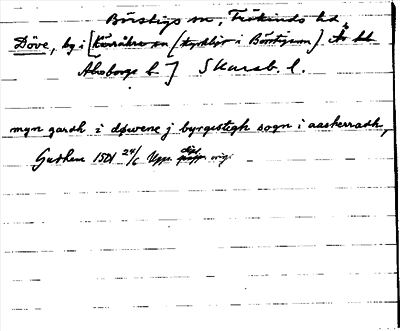 Börstigs sn, Frökinds hd,
Döve, by i [Kärråkra sn (kyrkby i Börstigsn) Ås hd
Älvsborgs l.] Skarab. l.
myn gardh i døwene j byrgestigh sogn i aaskerradh,
Gudhem 1501 24/6 Upps. dipl. papp. orig.